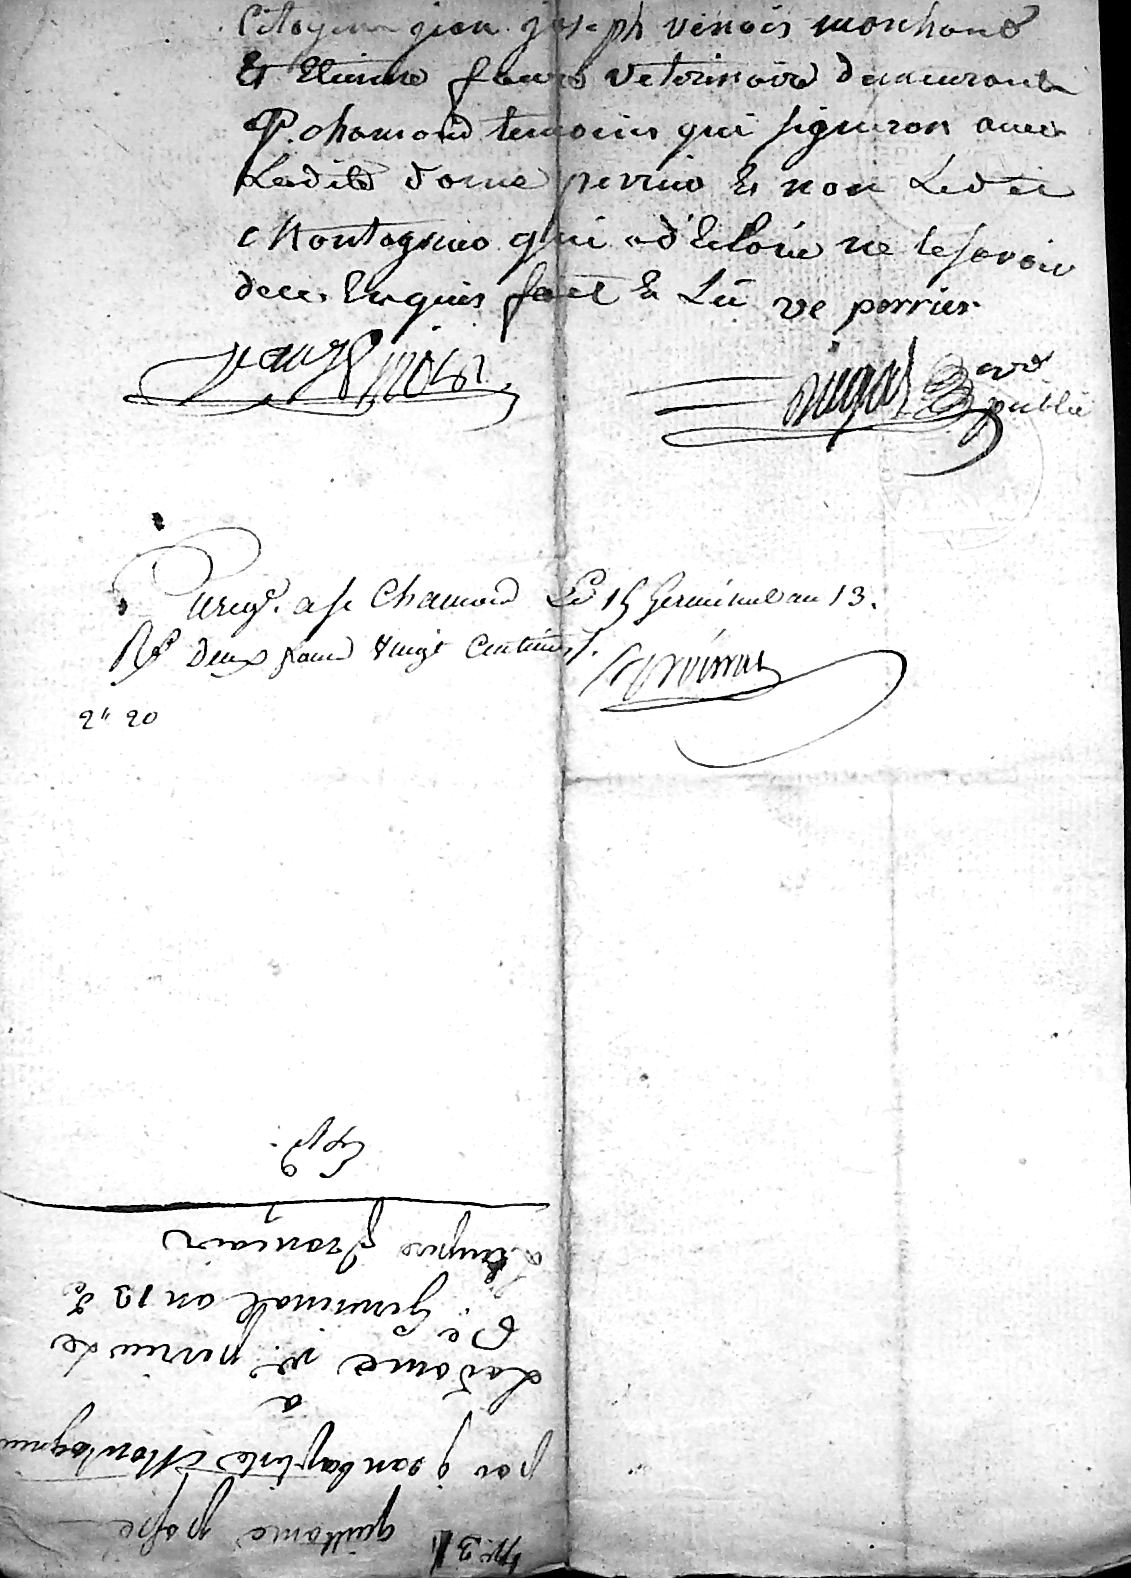 Citoyens jean joseph vinois marchand
Et Etienne faure veterinaire demeurant a
St. chamond temoins qui signeron avec
Ladite dame perrier Et non Ledit
Montagnier qui a dEclaré ne le savoir
de ce Enquis fait Et Lu ve perrier
public
Enregé. a St Chamond Le 15 Germinal an 13.
Rs deux francs vingt Centimes.
2" 20
Expd.
N° 31 quittance passé
par jean baptiste Montagnier
a
La dame ve. perrier Le
germinal an 13 Eo
L'empire français